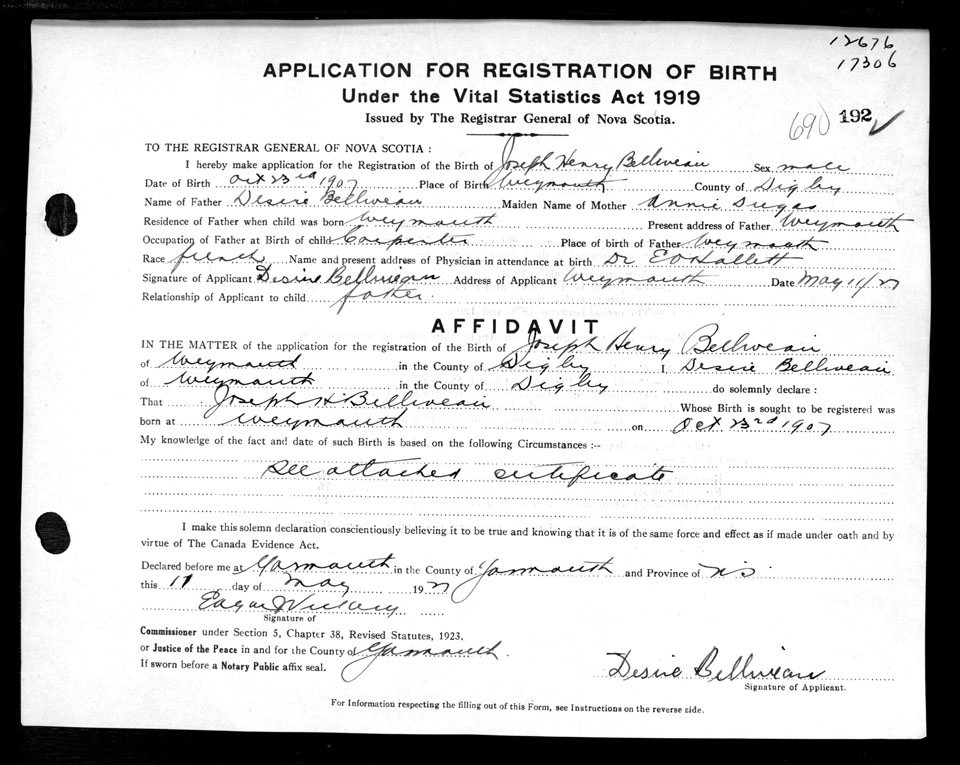 12676
17306
APPLICATION FOR REGISTRATION OF BIRTH
Under the Vital Statistics Act 1919
Issued by The Registrar General of Nova Scotia.
690 192 ✓
TO THE REGISTRAR GENERAL OF NOVA SCOTIA :
I hereby make application for the Registration of the Birth of Joseph Henry Belliveau Sex male
Date of Birth Oct 23rd 1907 Place of Birth Weymouth County of Digby
Name of Father Desire Belliveau Maiden Name of Mother Annie Dugas
Residence of Father when child was born Weymouth Present address of Father Weymouth
Occupation of Father at Birth of child Carpenter Place of birth of Father Weymouth
Race french Name and present address of Physician in attendance at birth Dr E O Hallett
Signature of Applicant Desire Belliveau Address of Applicant Weymouth Date May 11/27
Relationship of Applicant to child father.
AFFIDAVIT
IN THE MATTER of the application for the registration of the Birth of Joseph Henry Belliveau
of Weymouth in the County of Digby I Desire Belliveau
of Weymouth in the County of Digby do solemnly declare :
That Joseph H Belliveau Whose Birth is sought to be registered was
born at Weymouth on Oct 23rd 1907
My knowledge of the fact and date of such Birth is based on the following Circumstances :--
See attached certificate
I make this solemn declaration conscientiously believing it to be true and knowing that it is of the same force and effect as if made under oath and by
virtue of The Canada Evidence Act.
Declared before me at Yarmouth in the County of Yarmouth and Province of NS.
this 11 day of May 1927
Edgar J Vickery
Signature of
Commissioner under Section 5, Chapter 38, Revised Statutes, 1923,
or Justice of the Peace in and for the County of Yarmouth.
If sworn before a Notary Public affix seal.
Desire Belliveau
Signature of Applicant.
For Information respecting the filling out of this Form, see Instructions on the reverse side.